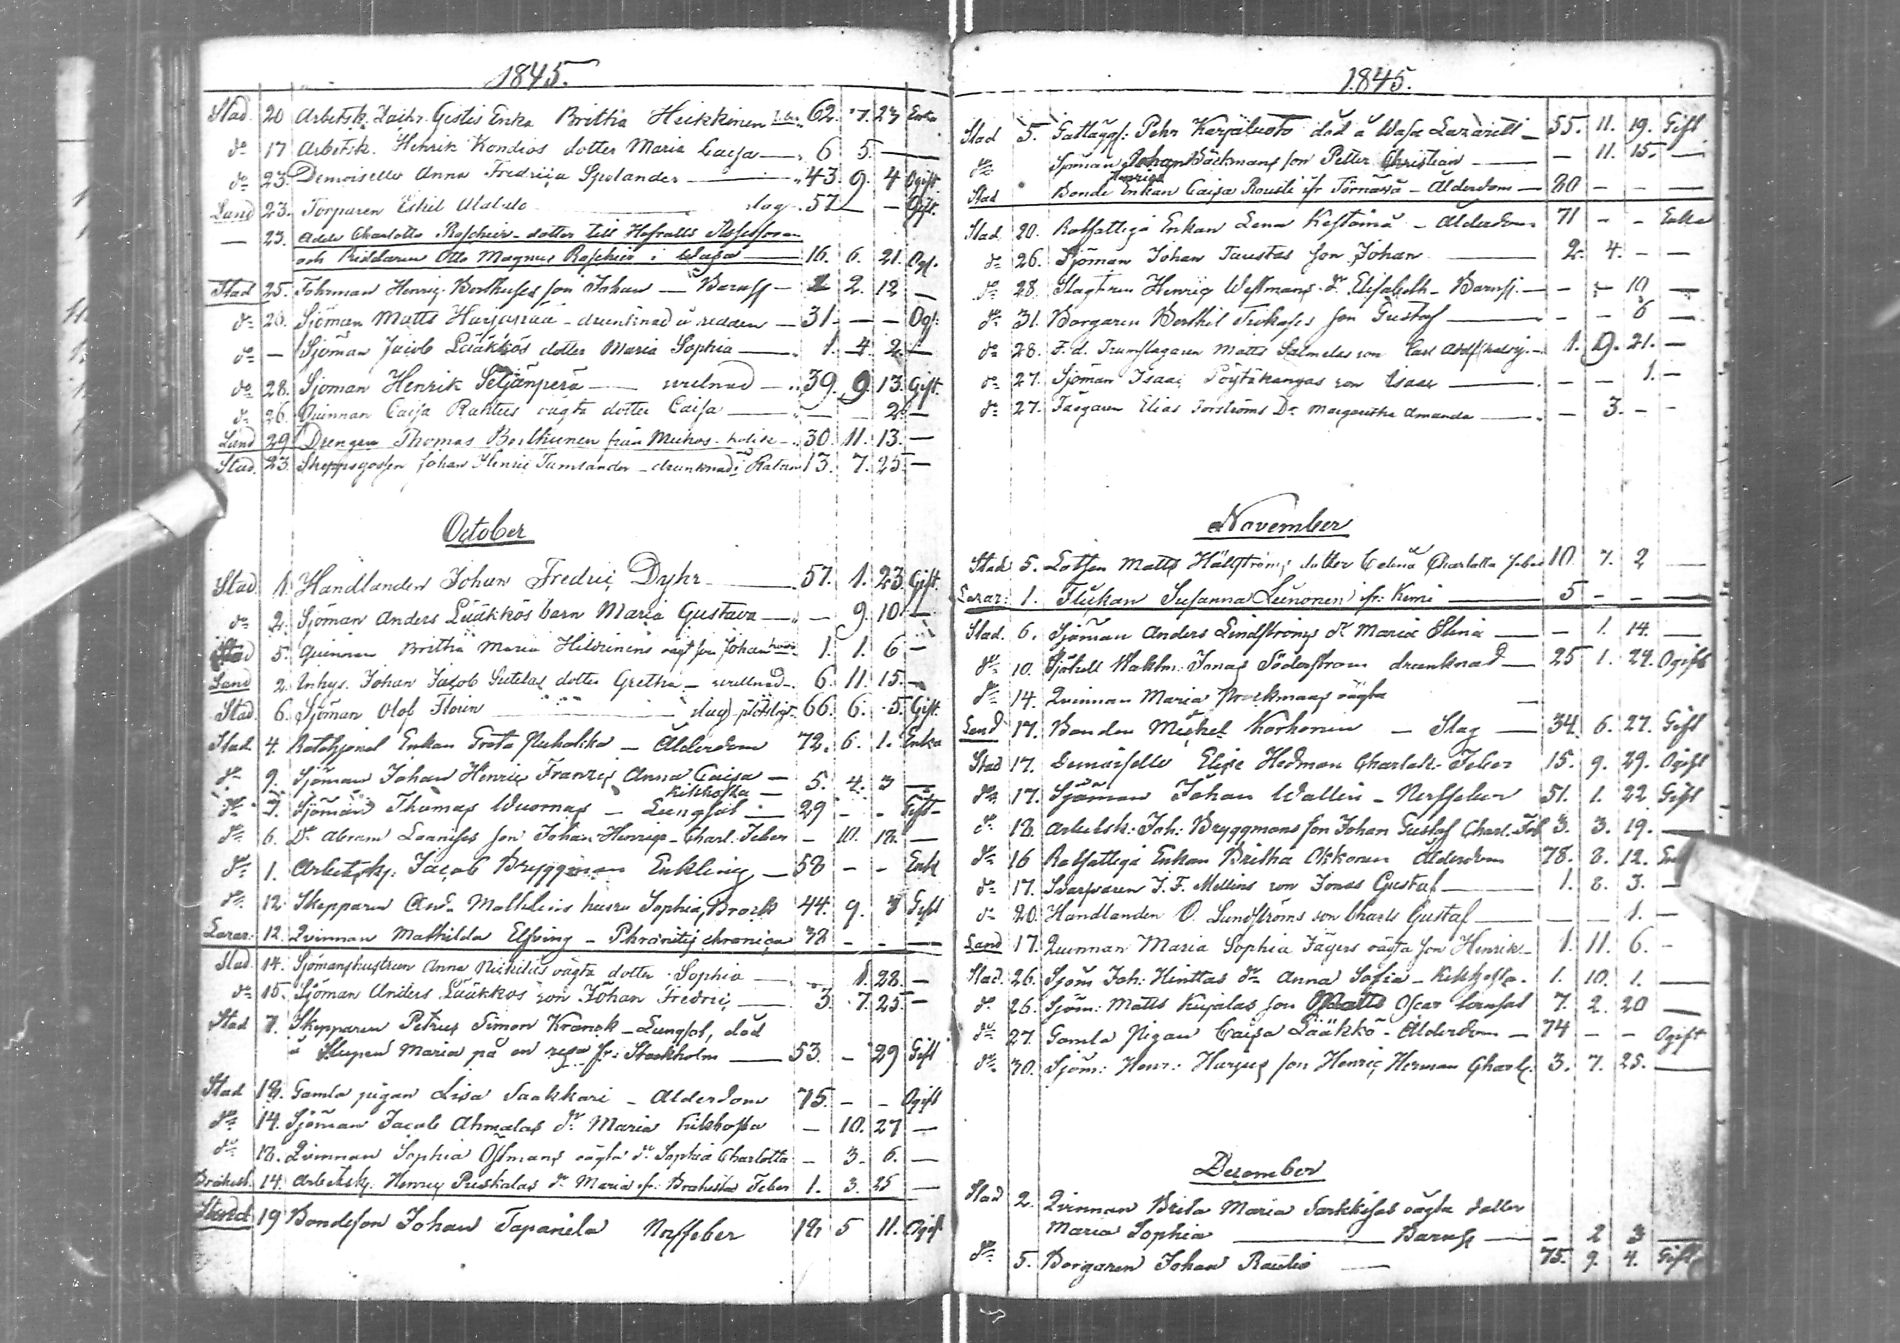 1845.
Stad 20 Arbetsk. Zachr. Gestis Enka Brittha Heikkinen 62. 7. 23 Enka
do 17 Arbetsk. Henrik Kondios dotter Maria Caisa 6 5. —
do 23. Demoiselle Anna Fredrica Spolander 43. 9. 4 Ogift.
Land 23. Torparen Eskil Alatalo slag 57 — — Gift.
— 23. Adele Charlotta Roschier dotter till Hofrätts Assessoren
och Riddaren Otto Magnus Roschier i Wasa 16. 6. 21. Og.
Stad 25. Fohrman Henric Borthuses son Johan — Barnss — 2. 12 —
do 26. Sjöman Matts Harjapää — drunknad å redden — 31. — — Og.
do — Sjöman Jacob Lääkkös dotter Maria Sophia 1. 4. 2. —
do 28. Sjöman Henrik Seljänperä — 39. 9 13. Gift.
do 26. Quinnan Caisa Rahtus oägta dotter Caisa — — 2. —
Land 29. Drengen Thomas Borthunen från Muhos — kolik — 30. 11. 13. —
Stad. 23. Skeppsgossen Johan Henric Tamlander — drunknad i Ratan 13. 7. 25 —
October
Stad 1. Handlanden Johan Fredric Dyhr 57. 1. 23. Gift
do 2. Sjöman Anders Lääkkös barn Maria Gustava — 9. 10. —
Stad 5. Quinnan Brittha Maria Hilderinens oägt son Johan 1. 1. 6 —
Land 2. Inhys. Johan Jacob dotter Gretha — 6. 11. 15. —
Stad. 6. Sjöman Olof Floren slag plötsligt 66. 6. 5. Gift.
Stad 4. Rotehjonet Enkan Greta Puhakka — Ålderdom 72. 6. 1. Enka
do 9. Sjöman Johan Henric Franzis Anna Caisa —
kikhosta — 5. 4. 3 —
do 7. Sjöman Thomas Wuornas — Lungsot — 29 — — Gift
do 6. Do Abram son Johan Henric — Charl. Feber — 10. 18. —
do 1. Arbetskj. Jacob Bryggman Enkling — 58 — — Enkl
do 12 Skepparen And. Mathleins hustru Sophia Brock 44. 9. 8 Gift
Lazar. 12. Qvinnan Mathilda Elfving — Phrenitis chronica 38 — — —
Stad 14. Sjömanshustrun Anna Nikilus oägta dotter Sophia — 1. 28. —
do 15. Sjöman Anders Lääkkös son Johan Fredric 3. 7. 25. —
Stad 7. Skepparen Petrus Simon Kranck — Lungsot, död
å Skeppet Maria på en resa fr. Stockholm 53. — 29 Gift
Stad 18. Gamla pigan Lisa Saakkari — Ålderdom 75. — — Ogift
do 14. Sjöman Jacob Ahmalas dr Maria kikhosta — 10. 27 —
do 18. Qvinnan Sophia Östmans oägta dr Sophia Charlotta — 3. 6. —
Brahest. 14. Arbetskj. Henric Puskalas dr Maria fr. Brahestad Feber 1. 3. 25 —
Land 19 Bondeson Johan Tapanila Nerffeber 18. 5 11. Ogift
1845.
Stad 5. Gattäggs: Pehr Karjaluoto död å Wasa Lazarett — 55. 11. 19. Gift
do Sjöman Johan Bäckmans son Petter Christian — 11. 15. —
Stad Bonde Enkan Caisa Rousti fr Törnävä — Ålderdom — 80 — — —
Stad 20. Rotfattiga Enkan Lena Keltamä — Ålderdom 71 — — Enka
do 26. Sjöman Johan Taustas son Johan 2. 4. — —
do 28. Slagtren Henric Westmans dr Elisabeth — Barnsj. — — 10 —
do 31. Borgaren Berthil Trokases son Gustaf — — 6 —
do 28. F. d. Trumslagaren Matts Salmelas son Carl Adolf 1. 9. 21. —
do 27. Sjöman Isaac Pöytäkangas son Isaac — — 1. —
do 27. Färgaren Elias Forströms Dr Margaretha Amanda — 3. — —
November
Stad 5. Lotsen Matts Hälströms dotter Edlä Charlotta feber 10. 7. 2 —
Lazar. 1. Flickan Susanna Leinonen fr. Kemi 5 — — —
Stad. 6. Sjöman Anders Lindströms dr Maria Stina — 1. 14. —
do 10. Sjötull Waktm. Jonas Söderström drunknad — 25 1. 29. Ogift
do 14. Qvinnan Maria Brockmans oägta —
Land 17. Bonden Mickel Korhonen — Slag — 34. 6. 27. Gift
Stad 17. Demoiselle Elise Hedman Charlak. Feber 15. 9. 29. Ogift
do 17. Sjöman Johan Wallin — Nerffeber 51. 1. 22 Gift
do 18. Arbetsk. Joh: Bryggmans son Johan Gustaf Charl. Feb 3. 3. 19. —
do 16 Rotfattiga Enkan Britha Okkonen Ålderdom 78. 8. 12. Enk
do 17. Svarfvaren J. F. Mellins son Jonas Gustaf 1. 8. 3. —
do 20. Handlanden O. Lundströms son Charls Gustaf — — 1. —
Land 17. Quinnan Maria Sophia Jägers oägta son Henrik 1. 11. 6. —
Stad. 26. Sjöm. Joh. Hinttas dr Anna Sofia — Kikhosta. 1. 10. 1. —
do 26. Sjöm: Matts Kujalas son Matts Oscar 7. 2. 20 —
do 27. Gamla Pigan Caisa Lääkkö — Ålderdom — 74 — — Ogift
do 30. Sjöm: Henr: Harjus son Henric Herman Charl. 3. 7. 25. —
December
Stad 2. Qvinnan Brita Maria Sarkkises oägta dotter
Maria Sophia Barnss — 2 3 —
do 5. Borgaren Johan Rautio 75. 9. 4. Gift